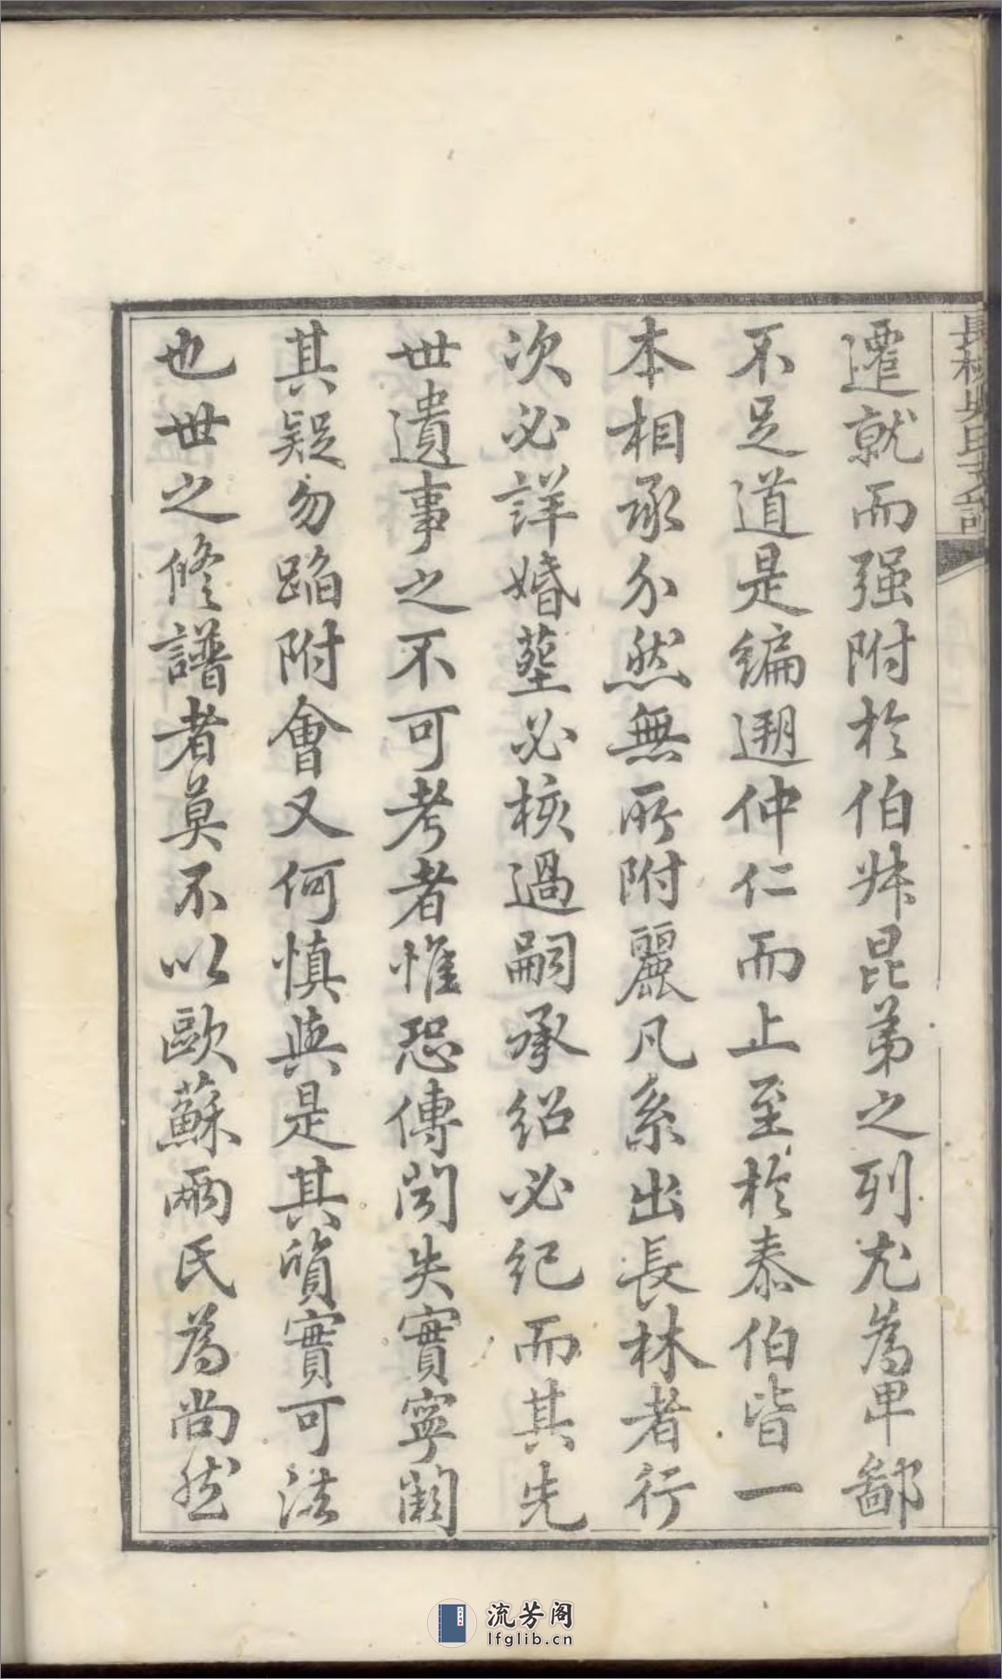 長林吳氏支譜
遷就而强附於伯叔昆弟之列尤為卑鄙
不足道是編遡仲仁而上至於泰伯皆一
本相承介然無所附麗凡系出長林者行
次必詳婚塟必核過嗣承紹必紀而其先
世遺事之不可考者惟恐傳聞失實寧闕
其疑勿蹈附會又何慎與是其質實可法
也世之修譜者莫不以歐蘇兩氏為尚然
流芳阁
lfglib.cn